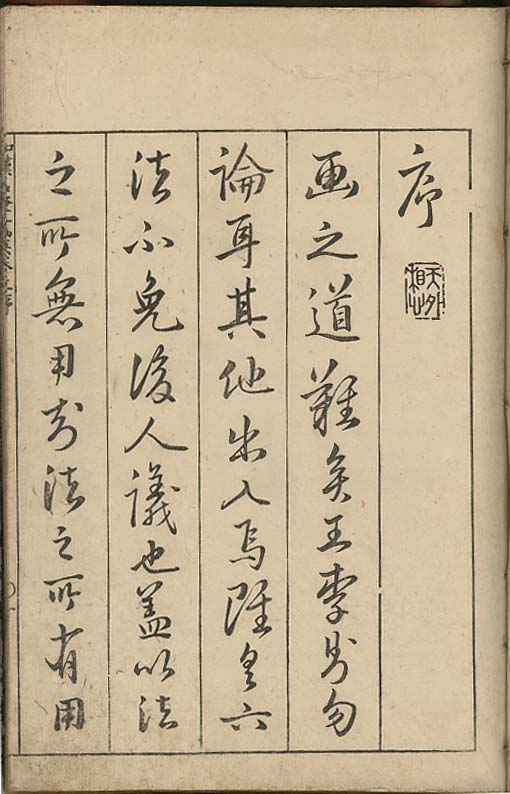 序
画之道難矣王李則勿
論耳其他出入焉雖具六
法不免後人議也蓋以法
之所無用於法之所有用